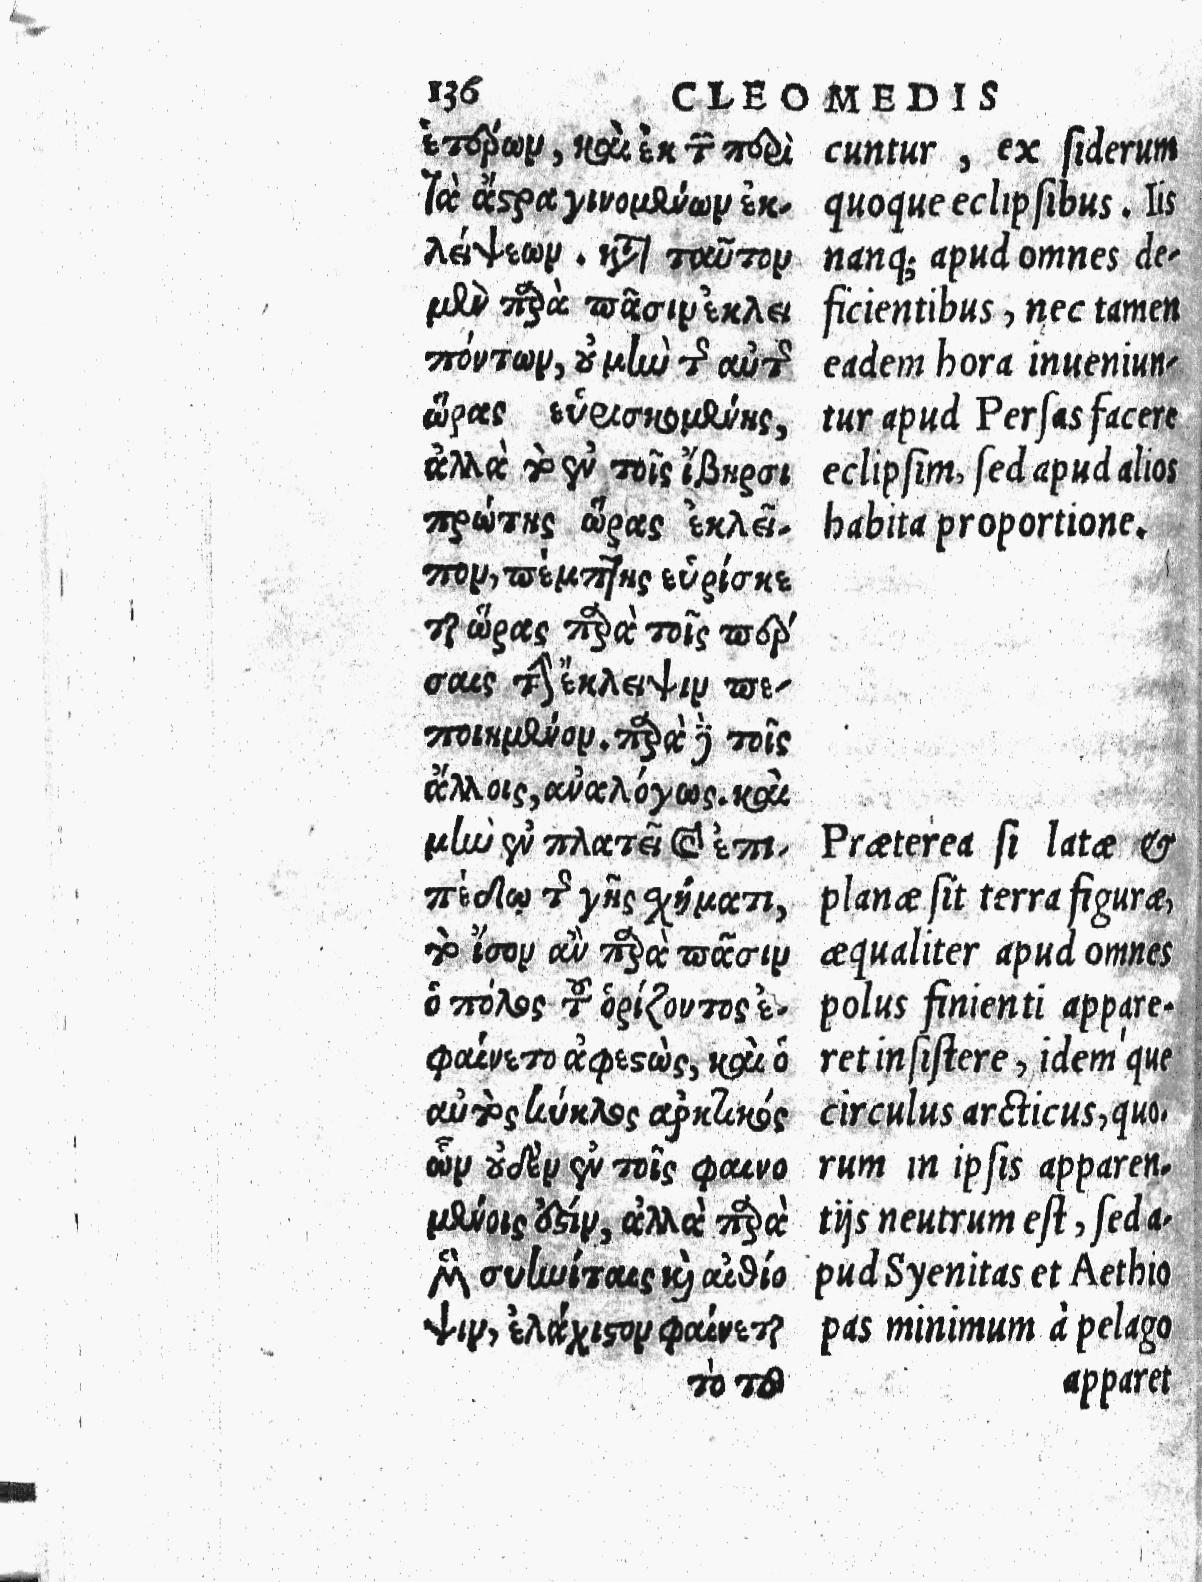 136 CLEOMEDIS
ἑτέρων, καὶ ἐκ τῶν περὶ
τὰ ἄστρα γινομένων ἐκ-
λείψεων. κατὰ ταῦτον
μὲν παρὰ πᾶσιν ἐκλει
πόντων, οὐ μὴν τῆς αὐτῆς
ὥρας εὑρισκομένης,
ἀλλὰ τὸ ἐν τοῖς ἴβηρσι
πρώτης ὥρας ἐκλεῖ-
πον, πέμπτης εὑρίσκε
ται ὥρας παρὰ τοῖς πέρ
σαις τὴν ἔκλειψιν πε-
ποιημένον. παρὰ δὲ τοῖς
ἄλλοις, ἀναλόγως. καὶ
μὴν ἐν πλατεῖ καὶ ἐπι-
πέδῳ τῆς γῆς σχήματι,
τὸ ἴσον ἂν παρὰ πᾶσιν
ὁ πόλος τοῦ ὁρίζοντος ἐ-
φαίνετο ἀφεστὼς, καὶ ὁ
αὐτὸς κύκλος ἀρκτικός
ὧν οὐδὲν ἐν τοῖς φαινο
μένοις ἐστίν, ἀλλὰ παρὰ
μὲν συηνίταις καὶ αἰθίο
ψιν, ἐλάχιστον φαίνεται
τὸ τοῦ
cuntur, ex ſiderum
quoque eclipſibus. Iis
nanq; apud omnes de-
ficientibus, nec tamen
eadem hora inueniun-
tur apud Perſas facere
eclipſim, ſed apud alios
habita proportione.
Præterea ſi latæ &
planæ ſit terra figuræ,
æqualiter apud omnes
polus finienti appare-
ret inſiſtere, idem'que
circulus arcticus, quo-
rum in ipſis apparen-
tijs neutrum eſt, ſed a-
pud Syenitas et Aethio
pas minimum à pelago
apparet